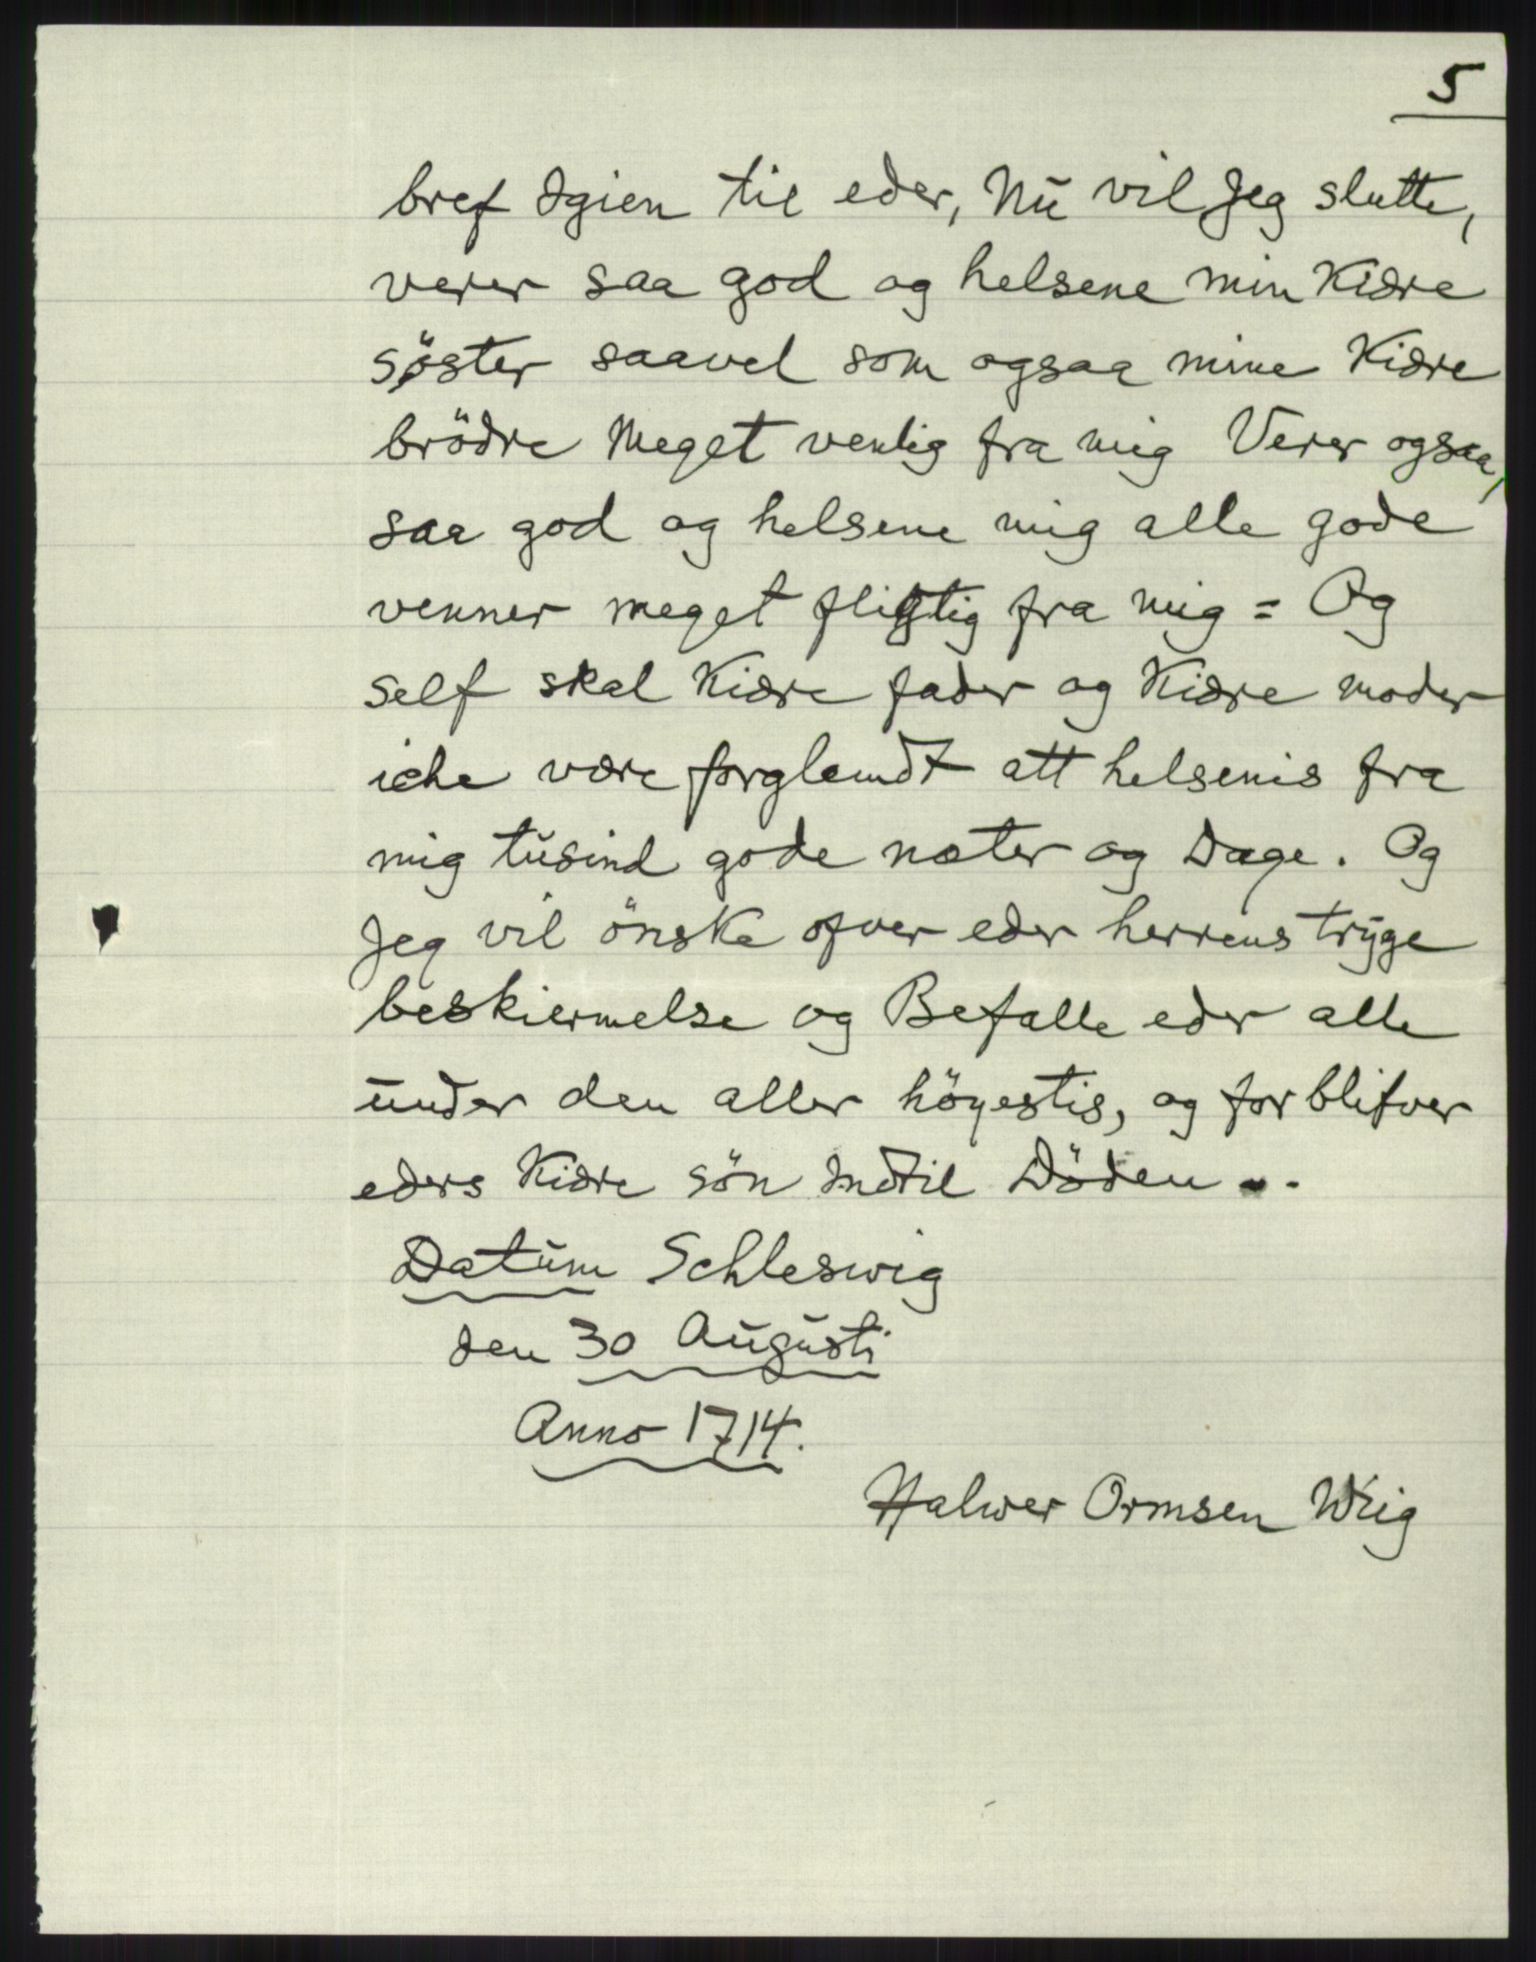 5
bref Igien til eder, Nū vil Jeg slutte,
verer saa god og helsene min Kiære
söster saavel som ogsaa mine Kiære
brödre Meget venlig fra mig Verer ogsaa,
saa god og helsene mig alle gode
venner meget fligtig fra mig = Og
self skal Kiære fader og Kiære moder
iche være forglemdt att helsenis fra
mig tūsind gode næter og Dage. Og
Jeg vil önske ofver eder herrens trÿge
beskiermelse og Befalle eder alle
ūnder den aller höyestis, og forblifver
eders Kiære sön Indtil Döden..
Datūm Schleswig
den 30 Aūgūsti
Anno 1714.
Halwer Ormsen Wiig